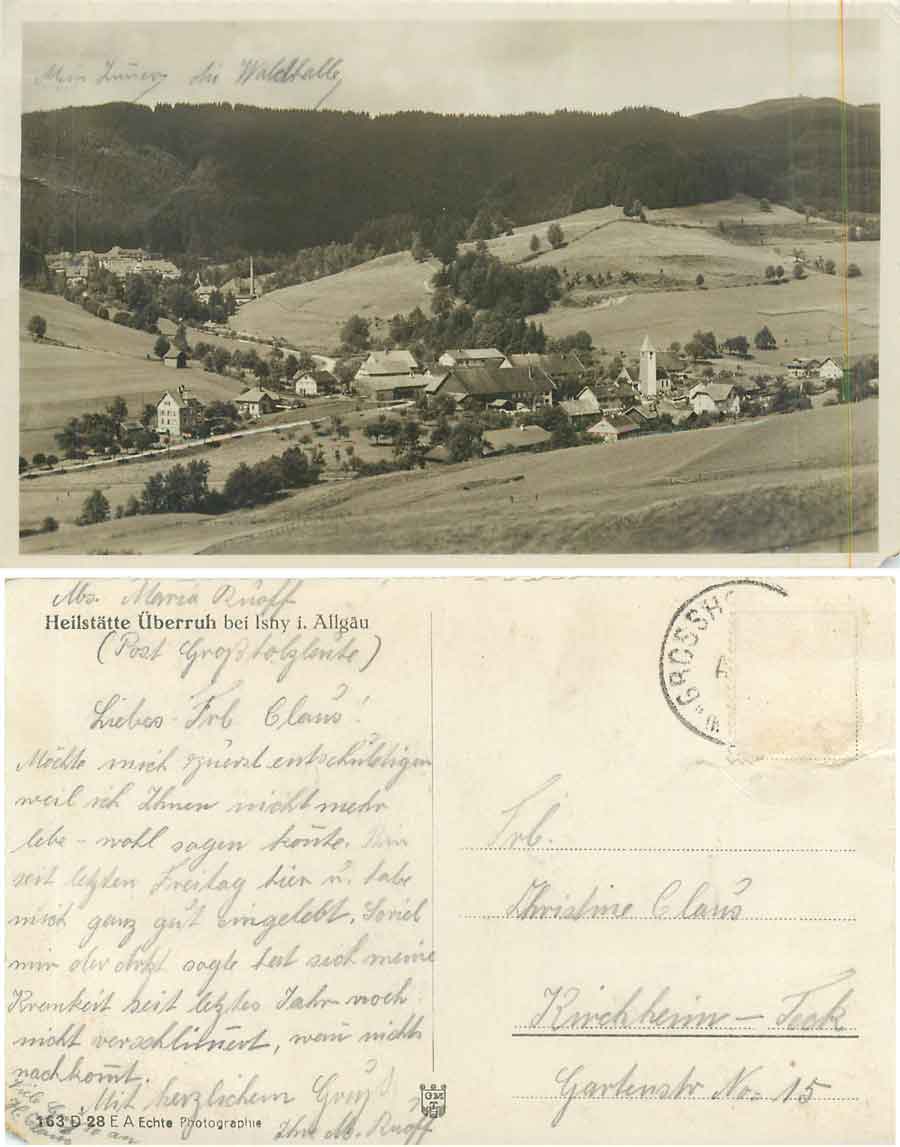 Mein Zimmer die Waldhalle
Abs. Maria Ruoff
Heilstätte Überruh bei Isny i. Allgäu
(Post Großholzleute)
Liebes Frl. Claus!
Möchte mich zuerst entschuldigen
weil ich Ihnen nicht mehr
lebe-wohl sagen konnte. Bin
seit letzten Freitag hier u. habe
mich ganz gut eingelebt. Soviel
mir der Arzt sagte hat sich meine
Krankeit seit letztes Jahr noch
nicht verschlimmert, wenn nichts
nachkommt.
Mit herzlichem Gruß
Ihre M. Ruoff
Viele
an
163 D 28 E A Echte Photographie
GROSSHO
Frl.
Christine Claus
Kirchheim-Teck
Gartenstr No. 15